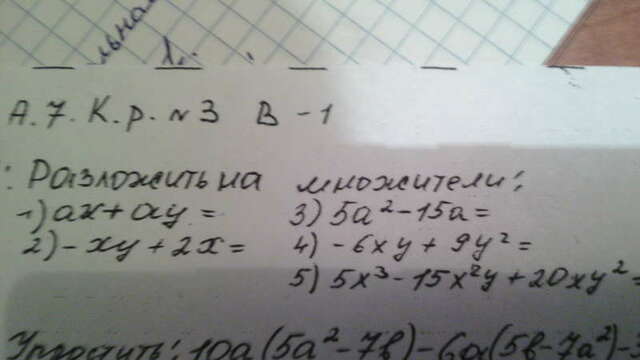 А.7. К.р. №3 В-1
Разложить на множители:
1) ax + ay =
2) -xy + 2x =
3) 5a² - 15a =
4) -6xy + 9y² =
5) 5x³ - 15x²y + 20xy² =
Упростить: 10a(5a² - 7b) - 6a(5b - 7a²) -